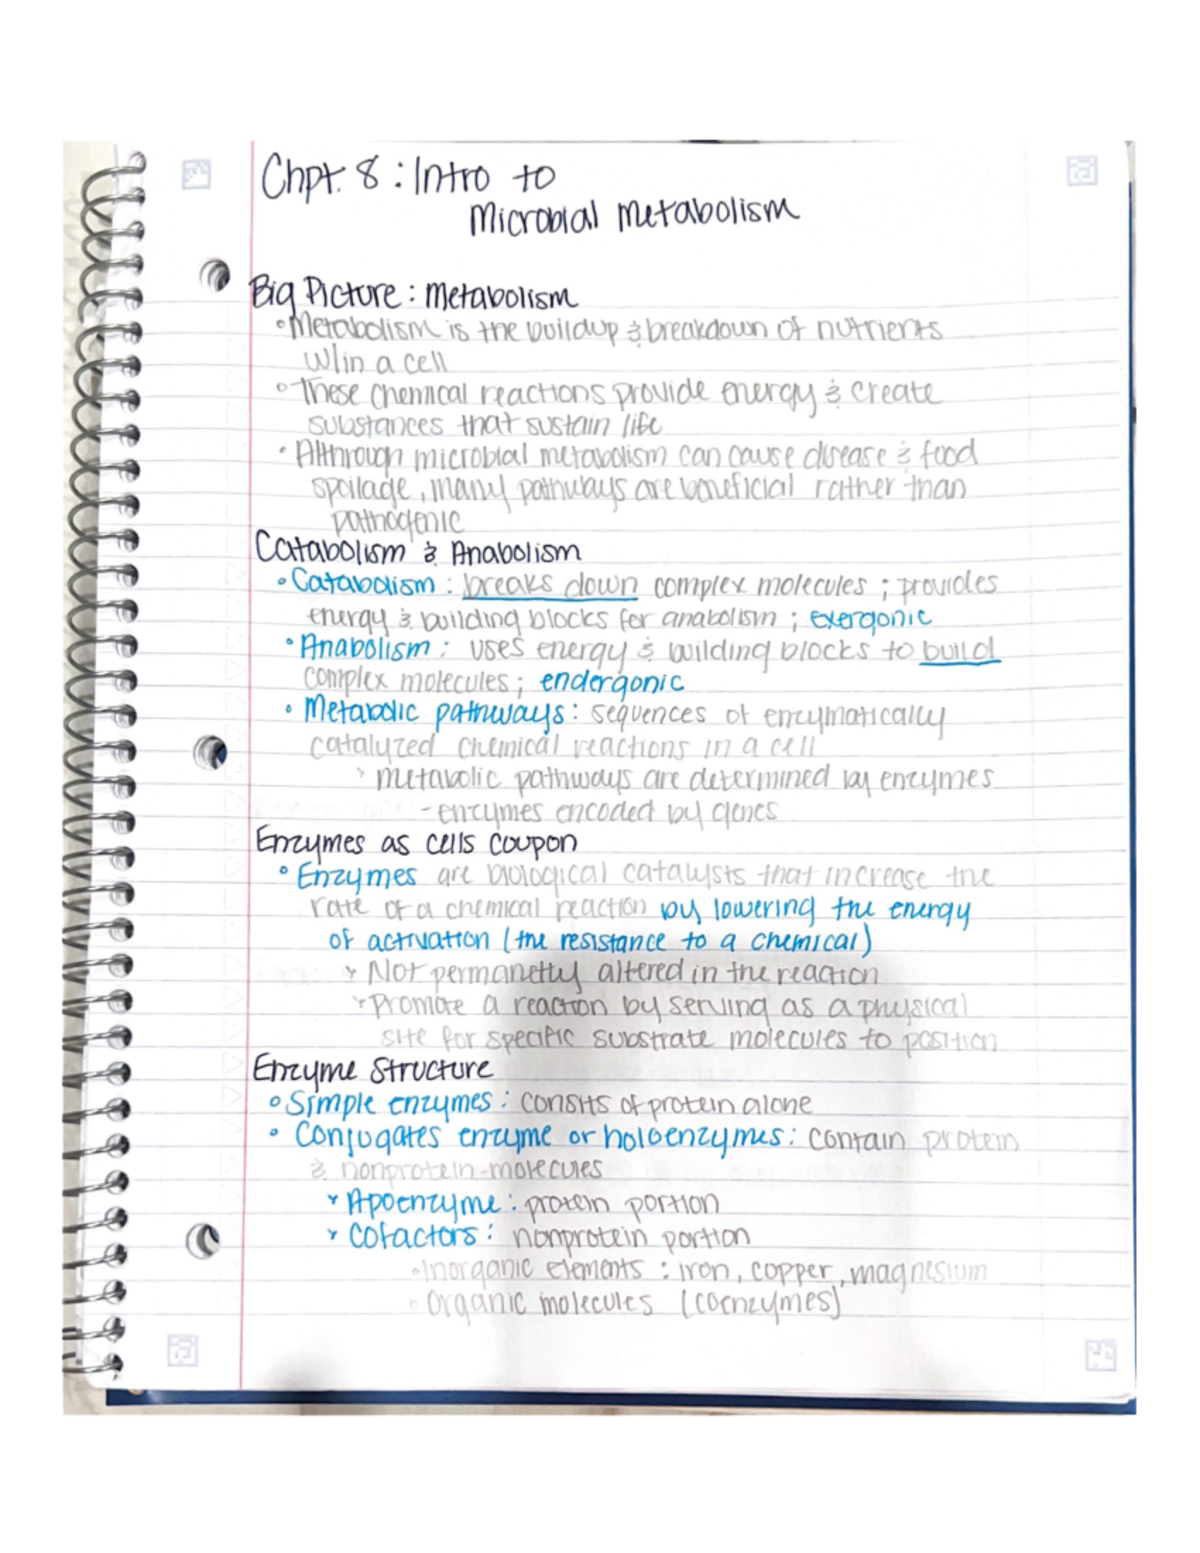 Chpt. 8 : Intro to
Microbial Metabolism
Big Picture : Metabolism
◦ Metabolism is the buildup & breakdown of nutrients
w/in a cell
◦ These chemical reactions provide energy & create
substances that sustain life
◦ Althrough microbial metabolism can cause disease & food
spoilage, many pathways are beneficial rather than
pathogenic
Catabolism & Anabolism
◦ Catabolism : breaks down complex molecules ; provides
energy & building blocks for anabolism ; exergonic
◦ Anabolism : uses energy & building blocks to build
complex molecules ; endergonic
◦ Metabolic pathways : sequences of enzymatically
catalyzed chemical reactions in a cell
> metabolic pathways are determined by enzymes
- enzymes encoded by genes
Enzymes as cells coupon
◦ Enzymes are biological catalysts that increase the
rate of a chemical reaction by lowering the energy
of activation (the resistance to a chemical)
> Not permanetly altered in the reaction
> Promote a reaction by serving as a physical
site for specific substrate molecules to position
Enzyme Structure
◦ Simple enzymes : consits of protein alone
◦ Conjugates enzyme or holoenzymes : contain protein
& nonprotein-molecules
> Apoenzyme : protein portion
> Cofactors : nonprotein portion
◦ Inorganic elements : iron, copper, magnesium
◦ Organic molecules (coenzymes)